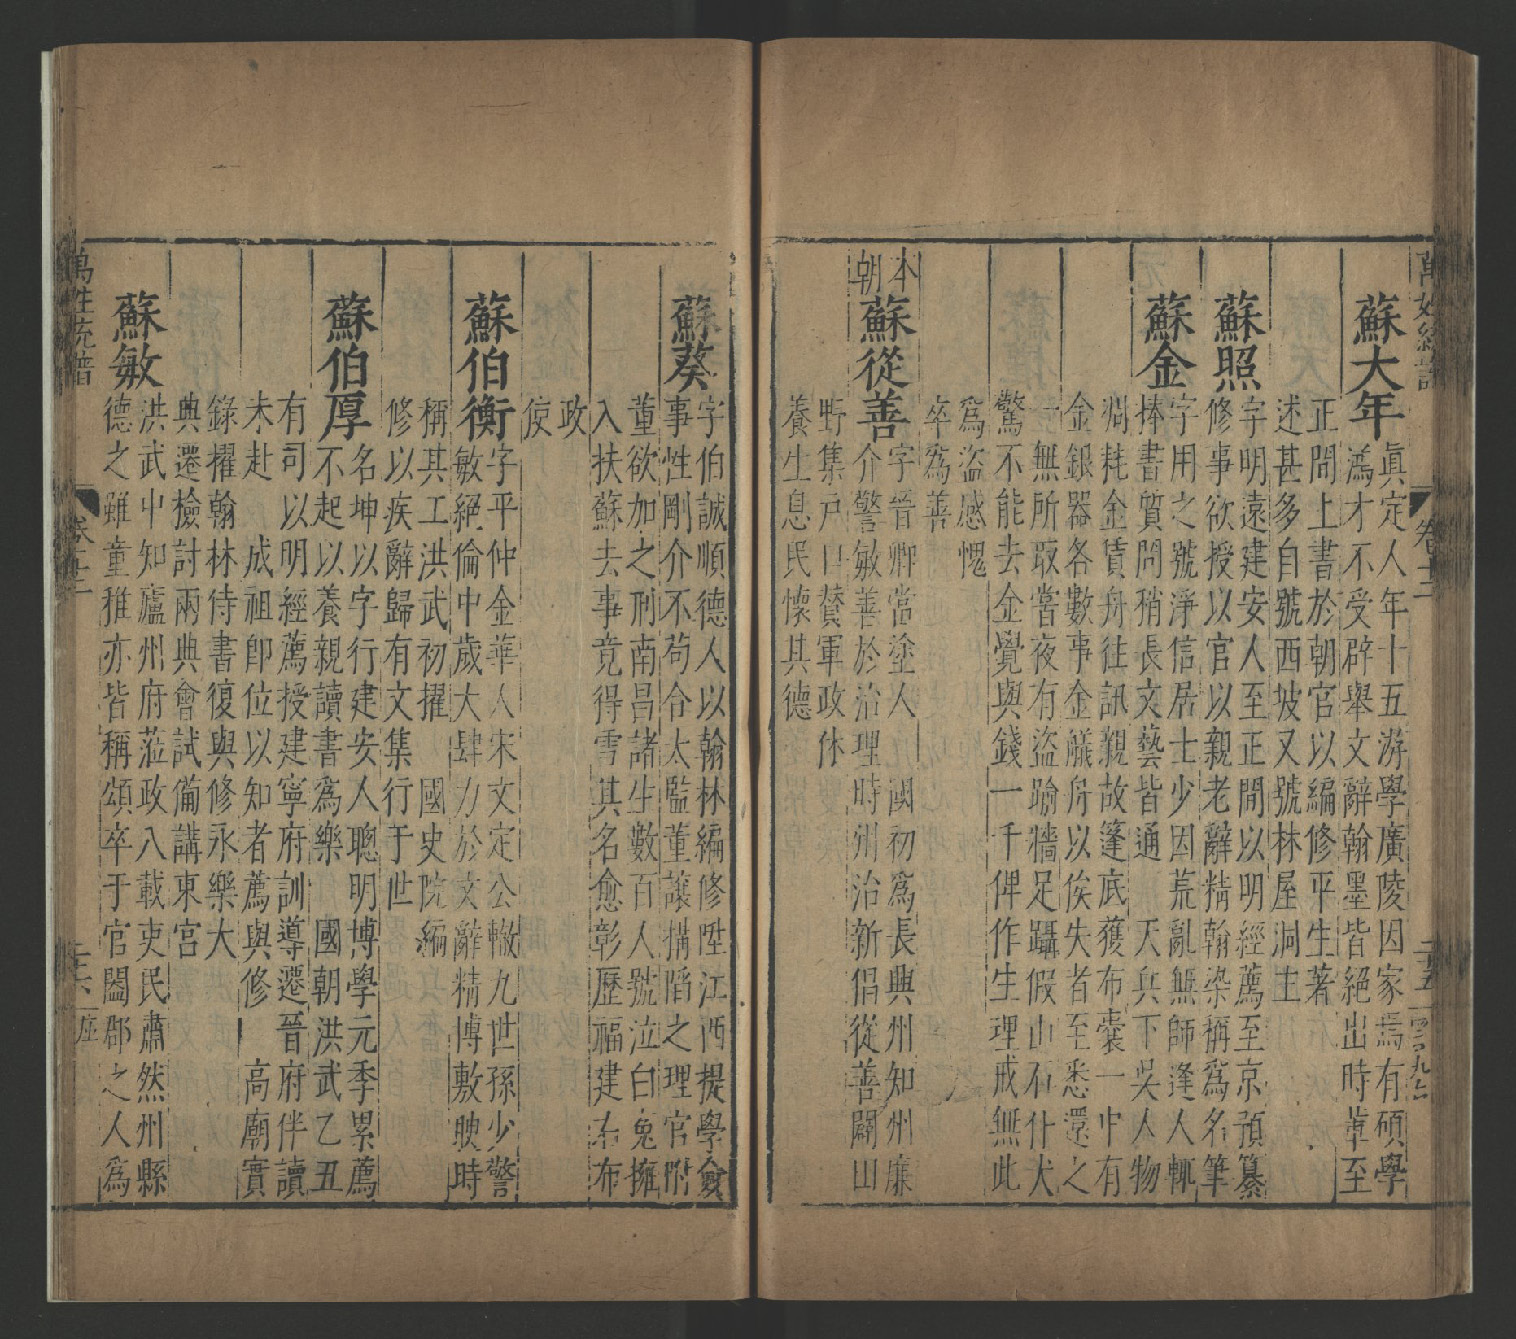 萬姓統譜
卷十二
蘇大年
眞定人年十五游學廣陵因家焉有碩學
爲才不受辟舉文辭翰墨皆絕出時輩至
正間上書於朝官以編修平生著
述甚多自號西坡又號林屋洞主
蘇照
字明遠建安人至正間以明經薦至京預纂
修事欲授以官以親老辭精翰染稱爲名筆
蘇金
字用之號淨信居士少因荒亂無師逢人輒
捧書質問稍長文藝皆通 天兵下吳人物
凋耗金貨舟往訊親故篷底獲布囊一中有
金銀器各數事金艤舟以俟失者至悉還之
一無所取嘗夜有盜踰牆足躡假山石仆犬
驚不能去金覺與錢一千俾作生理戒無此
爲盜感愧
卒爲善
本朝
蘇從善
字晉卿當塗人 國初爲長興州知州廉
介警敏善於治理時州治新倡從善闢山
野集戶口贊軍政休
養生息民懷其德
蘇葵
字伯誠順德人以翰林編修陞江西提學僉
事性剛介不苟合太監董讓搆陷之理官附
董欲加之刑南昌諸生數百人號泣白冤擁
入扶蘇去事竟得雪其名愈彰歷福建右布
政
使
蘇伯衡
字平仲金華人宋文定公轍九世孫少警
敏絕倫中歲大肆力於文辭精博敷腴時
稱其工洪武初擢 國史院編
修以疾辭歸有文集行于世
蘇伯厚
名坤以字行建安人聰明博學元季累薦
不起以養親讀書爲樂 國朝洪武乙丑
有司以明經薦授建寧府訓導遷晉府伴讀
未赴 成祖卽位以知者薦與修 高廟實
錄擢翰林侍書復與修永樂大
典遷檢討兩典會試備講東宮
蘇敏
洪武中知廬州府蒞政八載吏民肅然州縣
德之雖童稚亦皆稱頌卒于官闔郡之人爲
萬姓統譜
卷十二